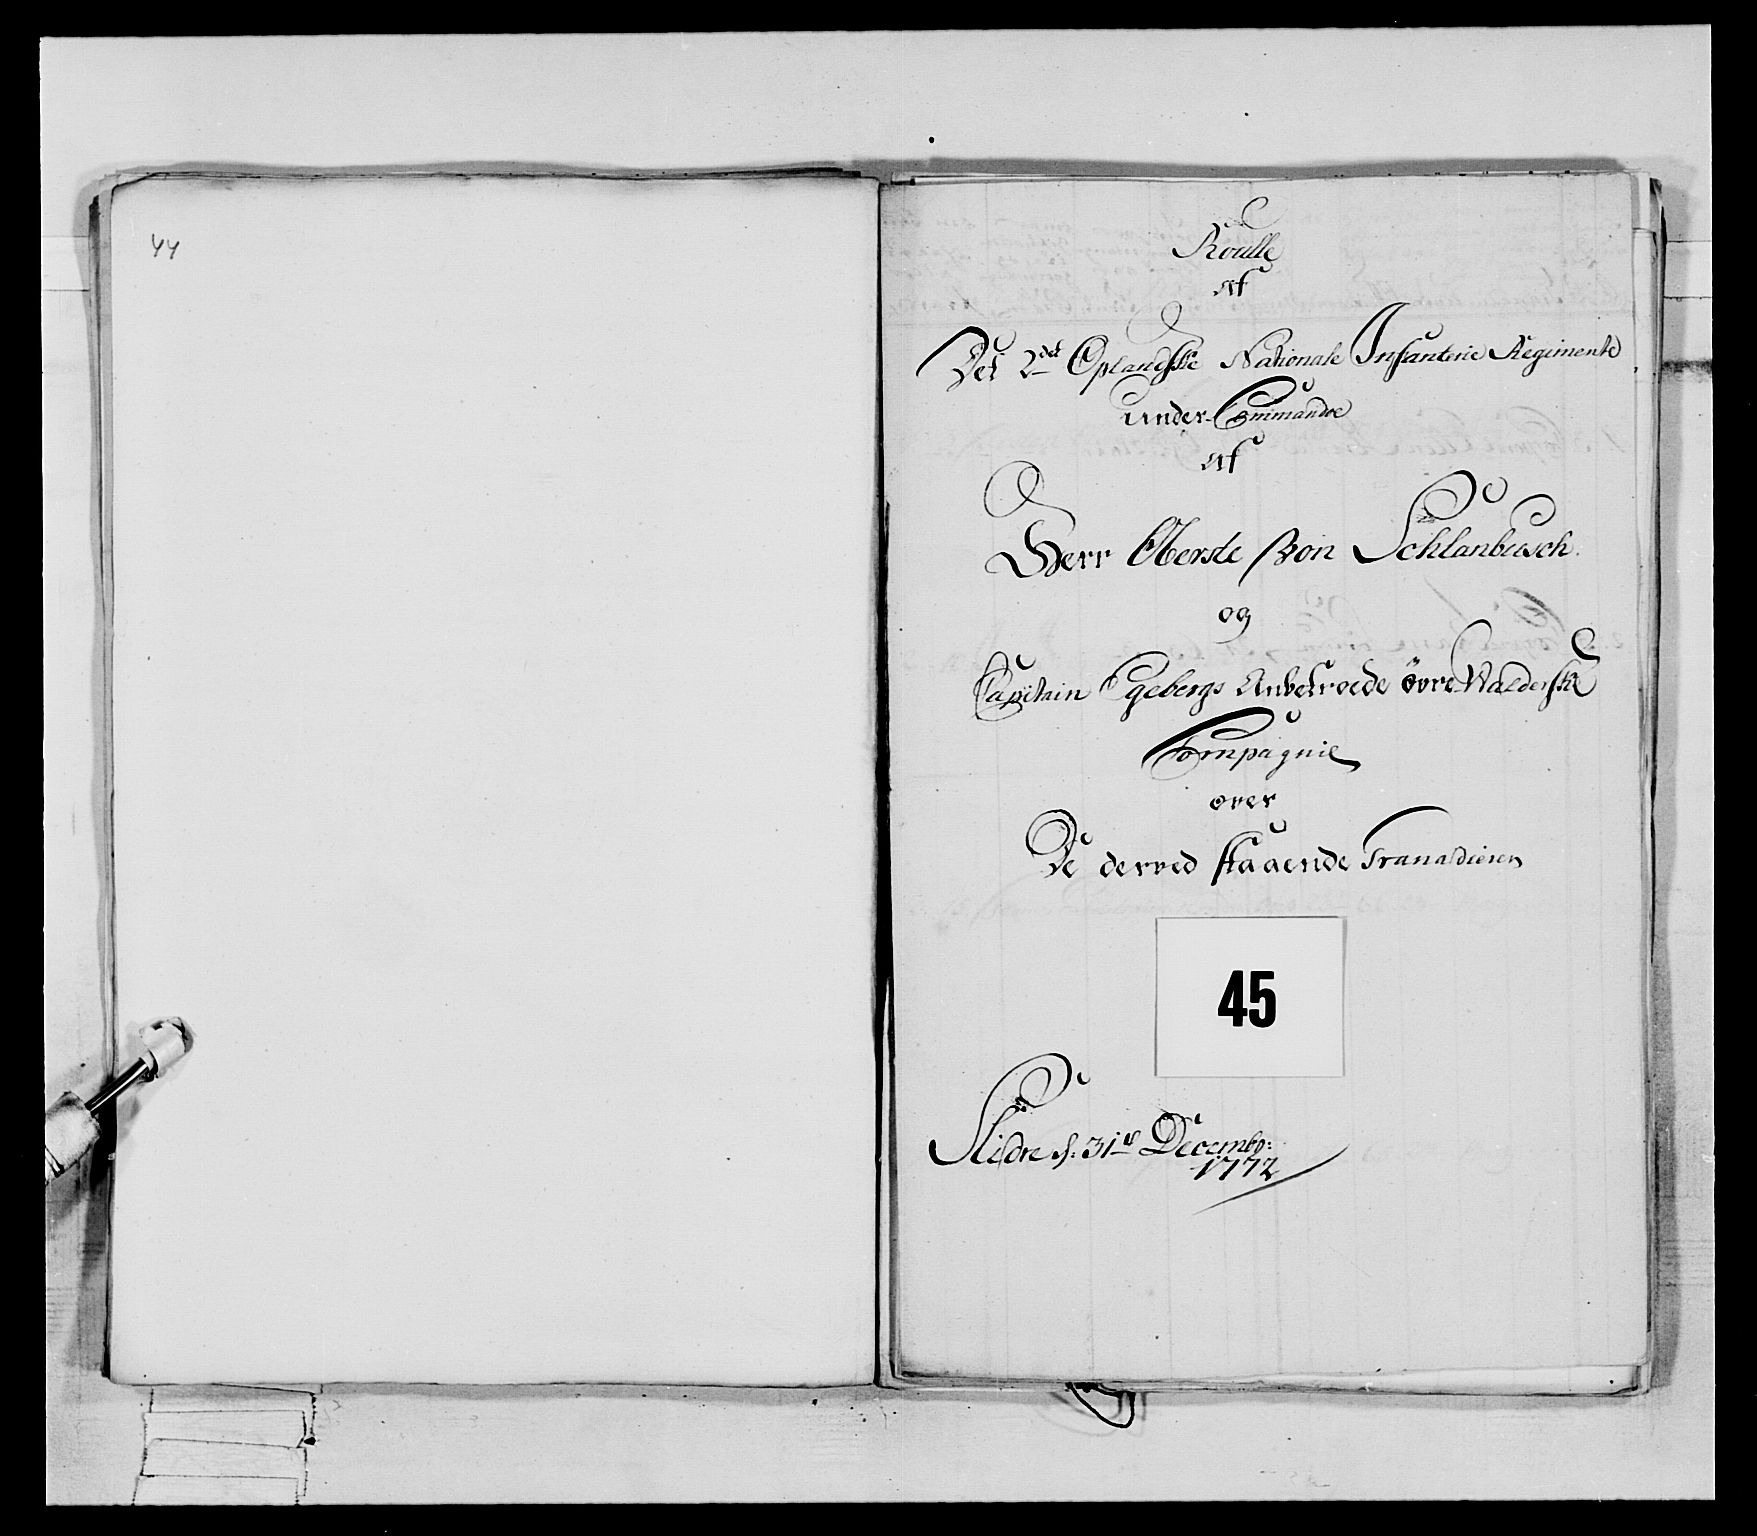 44
Roulle
Af
Det 2det Oplandske Nationale Infanterie Regimente
under Commandoe
Af
Herr Oberste Von Schlanbusch.
og
Capitain Egebergs Anbetroede övre Walderske
Compagnie
over
De derved staaende Granadierer
45
Slidre d: 31te Decembr:
1772